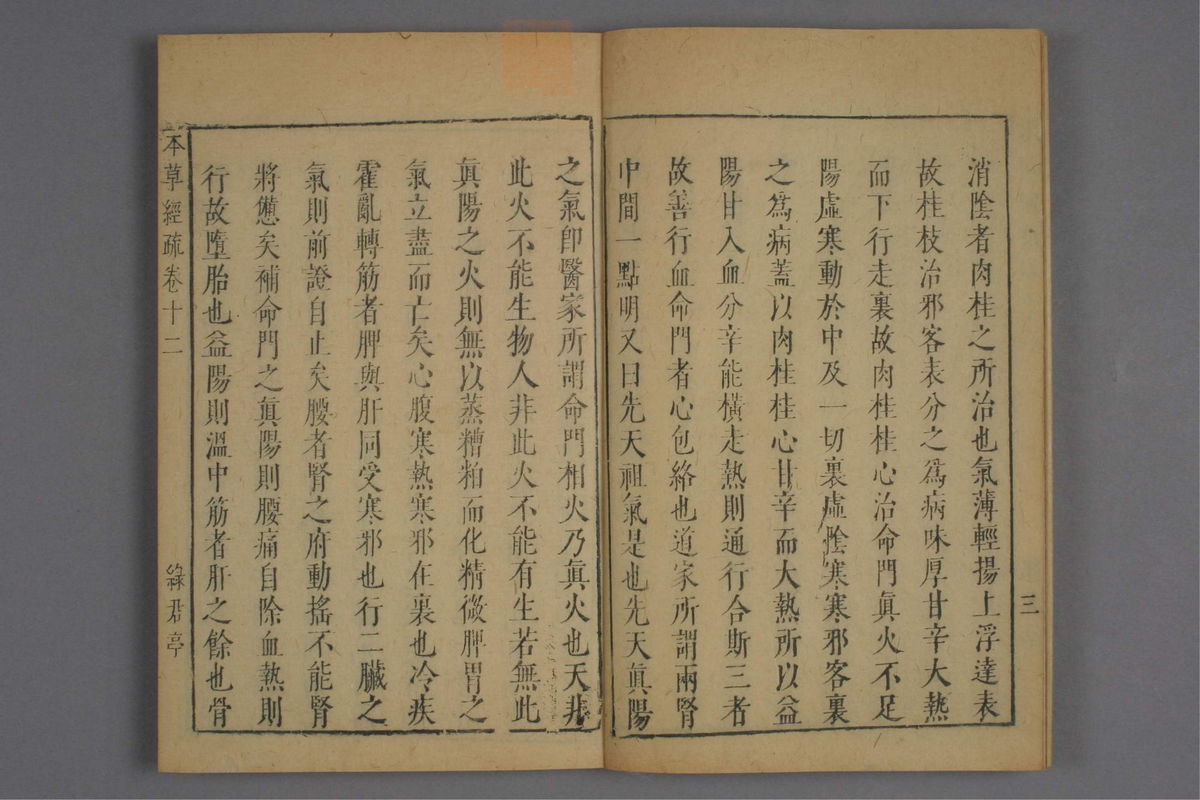 消陰者肉桂之所治也氣薄輕揚上浮達表
故桂枝治邪客表分之爲病味厚甘辛大熱
而下行走裏故肉桂桂心治命門眞火不足
陽虛寒動於中及一切裏虛陰寒寒邪客裏
之爲病蓋以肉桂桂心甘辛而大熱所以益
陽甘入血分辛能橫走熱則通行合斯三者
故善行血命門者心包絡也道家所謂兩腎
中間一點明又曰先天祖氣是也先天眞陽
三
之氣卽醫家所謂命門相火乃眞火也天非
此火不能生物人非此火不能有生若無此
眞陽之火則無以蒸糟粕而化精微脾胃之
氣立盡而亡矣心腹寒熱寒邪在裏也冷疾
霍亂轉筋者脾與肝同受寒邪也行二臟之
氣則前證自止矣腰者腎之府動搖不能腎
將憊矣補命門之眞陽則腰痛自除血熱則
行故墮胎也益陽則溫中筋者肝之餘也骨
本草經疏卷十二
綠君亭